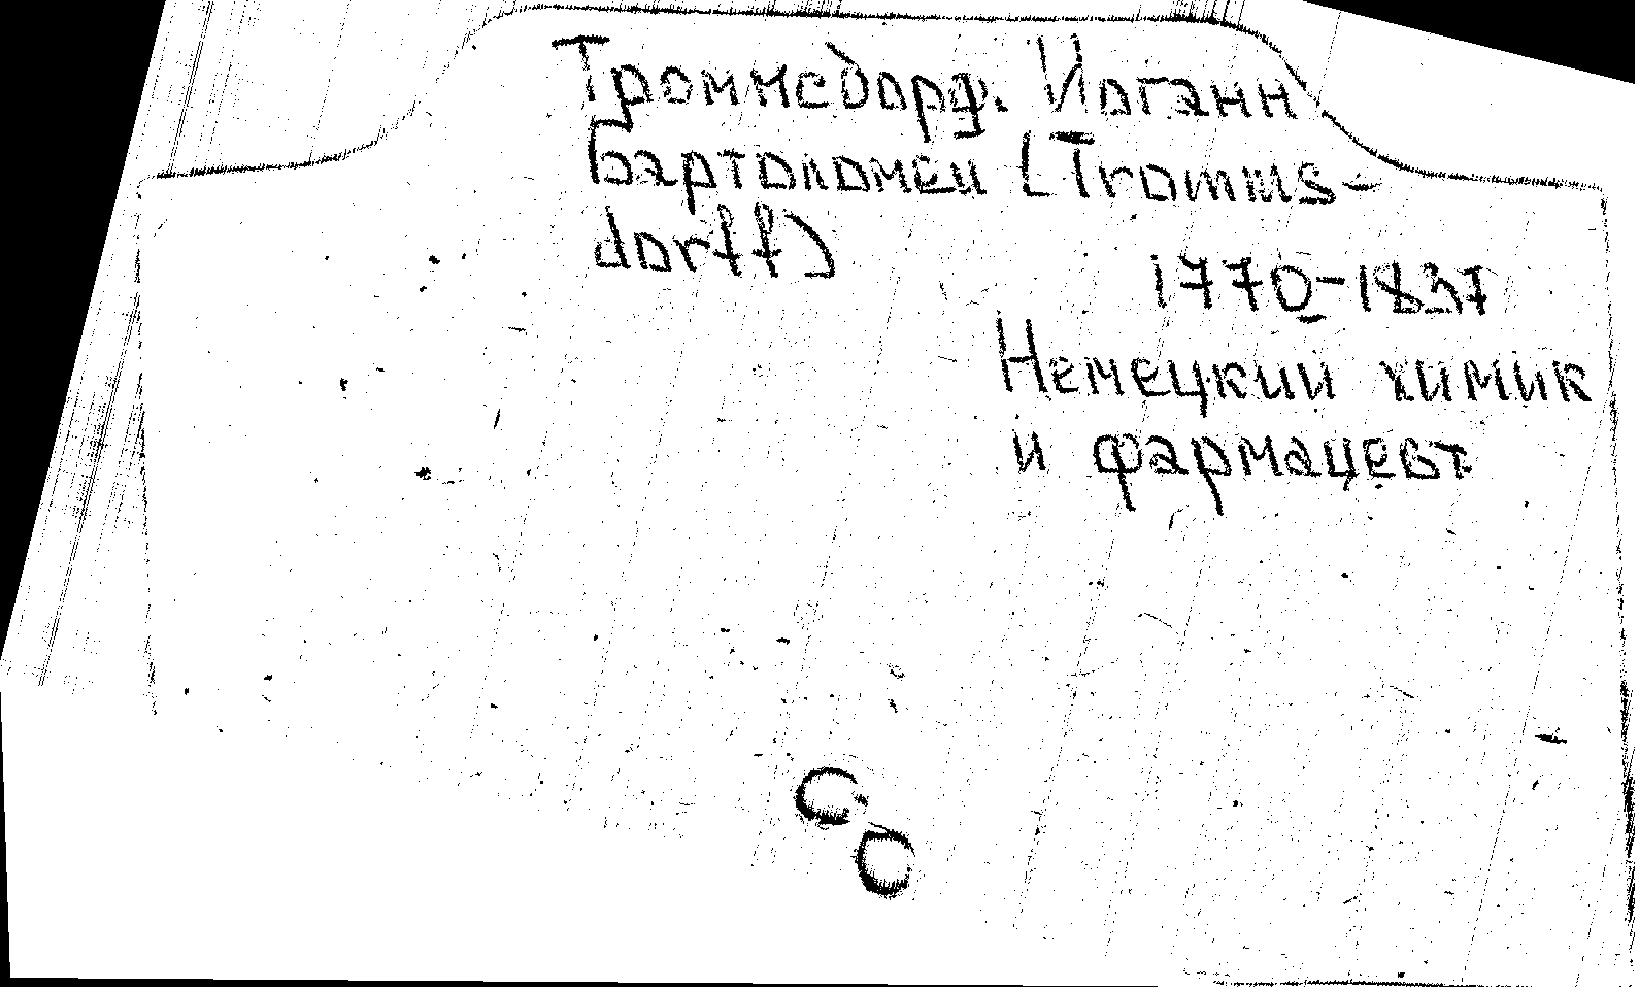 Троммсдорф. Иоганн
Бартоломеи (Tromms-
dorff)
1770-1837
Немецкии химик
и фармацевт